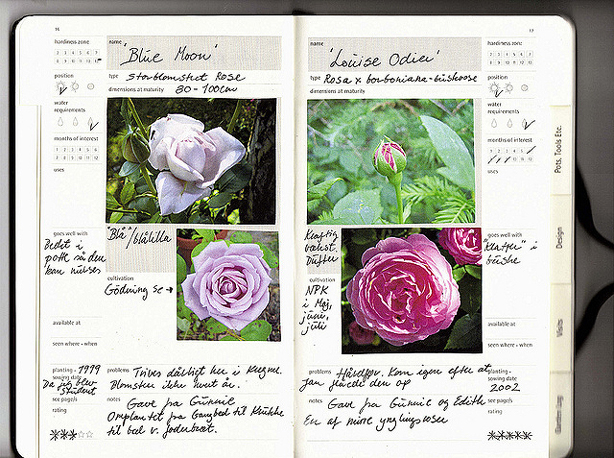 hardiness zone
1 2 3 4 5 6
7 8 9 10 11 12
position
water
requirements
months of interest
1 2 3 4 5 6
7 8 9 10 11 12
uses
goes well with
Bedst i
potte så den
kan nurses
available at
seen where - when
planting - 1979
sowing date
Da jeg blev
student
see page/s
rating
name 'Blue Moon'
type Storblomstret Rose
dimensions at maturity 80 - 100 cm
"Blå"/blålilla
cultivation
Gødning se →
problems Trives dårligt her i
Blomstrer ikke hvert år.
notes Gave fra Gunnie
Omplantet fra Gangbed til Krukke
til bed v. Jorderbræt.
name 'Louise Odier'
type Rosa x borboniana - buskrose
dimensions at maturity
Kraftig
vækst.
Dufter
cultivation
NPK
i Maj,
juni,
juli
problems Hårdfør. Kom igen efter at
jan flåede den op
notes Gave fra Gunnie og Edith
En af mine ynglingsroser
hardiness zone
1 2 3 4 5 6
7 8 9 10 11 12
position
water
requirements
months of interest
uses
goes well with
"Klatter" i
buske
available at
seen where - when
planting -
sowing date
2002
see page/s
rating
Pots, Tools Etc.
Design
Visits